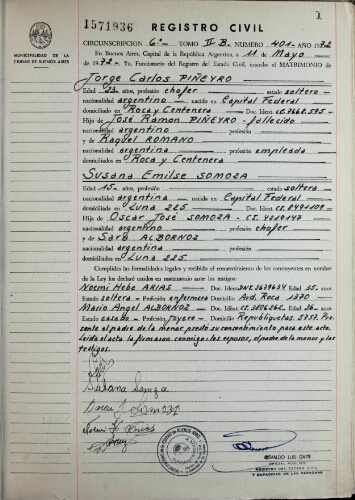 1
1571936 REGISTRO CIVIL
MUNICIPALIDAD DE LA
CIUDAD DE BUENOS AIRES
CIRCUNSCRIPCION 6ª TOMO II B. NUMERO 401 AÑO 1972
En Buenos Aires, Capital de la República Argentina, a 11 de Mayo
de 1972 Yo, Funcionario del Registro del Estado Civil, inscribo el MATRIMONIO de
Jorge Carlos PIÑEYRO
Edad 23 años, profesión chofer estado soltero
nacionalidad argentino nacido en Capital Federal
domiciliado en Roca y Centenera Doc. Ident. CI. 7668.595
Hijo de José Ramon PIÑEYRO - fallecido
nacionalidad argentino profesión
y de Raquel ROMANO
nacionalidad argentina profesión empleada
domiciliados en Roca y Centenera
Susana Emilse SOMOZA
Edad 15 años, profesión estado soltera
nacionalidad argentina nacida en Capital Federal
domiciliada en Luna 225 Doc. Ident. CI.
Hija de Oscar José SOMOZA - CI. 4219147
nacionalidad argentino profesión chofer
y de Sara ALBORNOZ
nacionalidad argentina profesión
domiciliados en Luna 225
Cumplidas las formalidades legales y recibido el consentimiento de los contrayentes en nombre
de la Ley los declaré unidos en matrimonio ante los testigos:
Noemi Hebe ARIAS Doc. Ident. Edad 35 años
Estado soltera Profesión enfermera Domicilio Avd. Roca 1370
Mario Angel ALBORNOZ Doc. Ident. CI. Edad 36 años
Estado casado Profesión joyero Domicilio Republiquetas 5757. Pre
sente el padre de la menor prestó su consentimiento para este acto
leída el acta la firmaron conmigo: los esposos, el padre de la menor y los
testigos.
Susana Somoza
Oscar J. Somoza
Noemi H. Arias
OSVALDO LUIS
OFICIAL PUBLICO
REGISTRO DEL ESTADO CIVIL
Y CAPACIDAD DE LAS PERSONAS